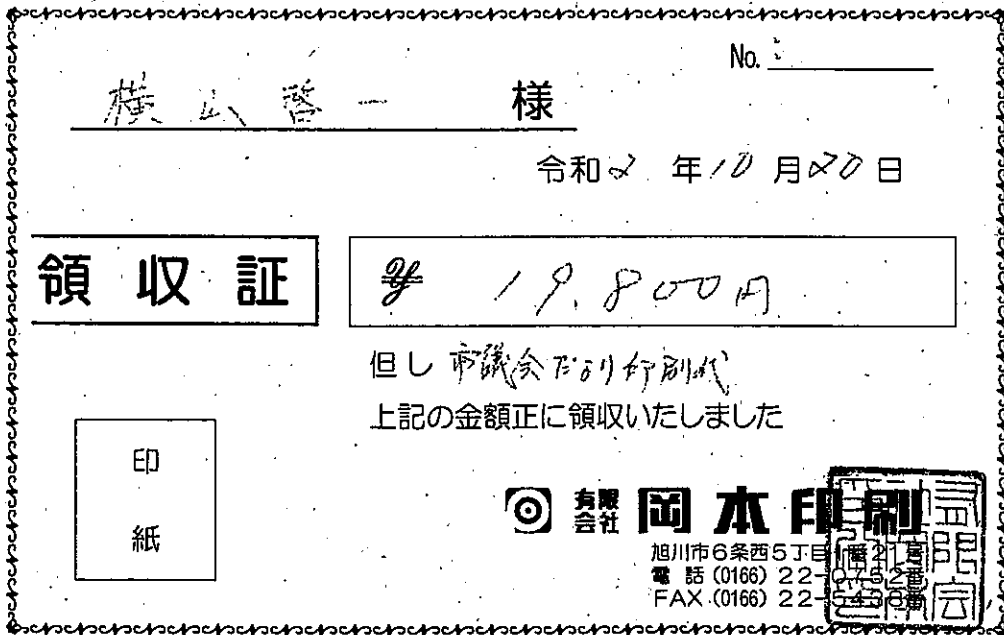 No.
横山啓一 様
令和2年10月20日
領収証
¥ 19,800円
但し 市議会だより印刷代
上記の金額正に領収いたしました
印紙
有限会社 岡本印刷
旭川市6条西5丁目1番21号
電話 (0166) 22-0752番
FAX (0166) 22-5438番